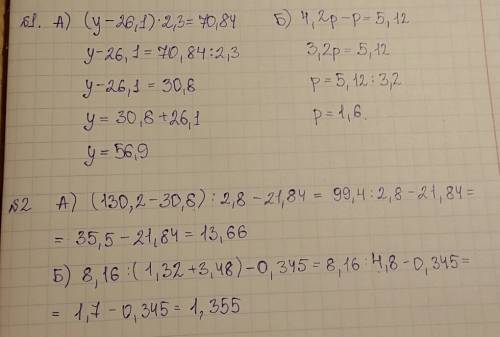 №1. А) (y-26,1)·2,3=70,84
y-26,1=70,84:2,3
y-26,1=30,8
y=30,8+26,1
y=56,9
Б) 4,2p-p=5,12
3,2p=5,12
p=5,12:3,2
p=1,6.
№2 А) (130,2-30,8):2,8-21,84=99,4:2,8-21,84=
=35,5-21,84=13,66
Б) 8,16:(1,32+3,48)-0,345=8,16:4,8-0,345=
=1,7-0,345=1,355